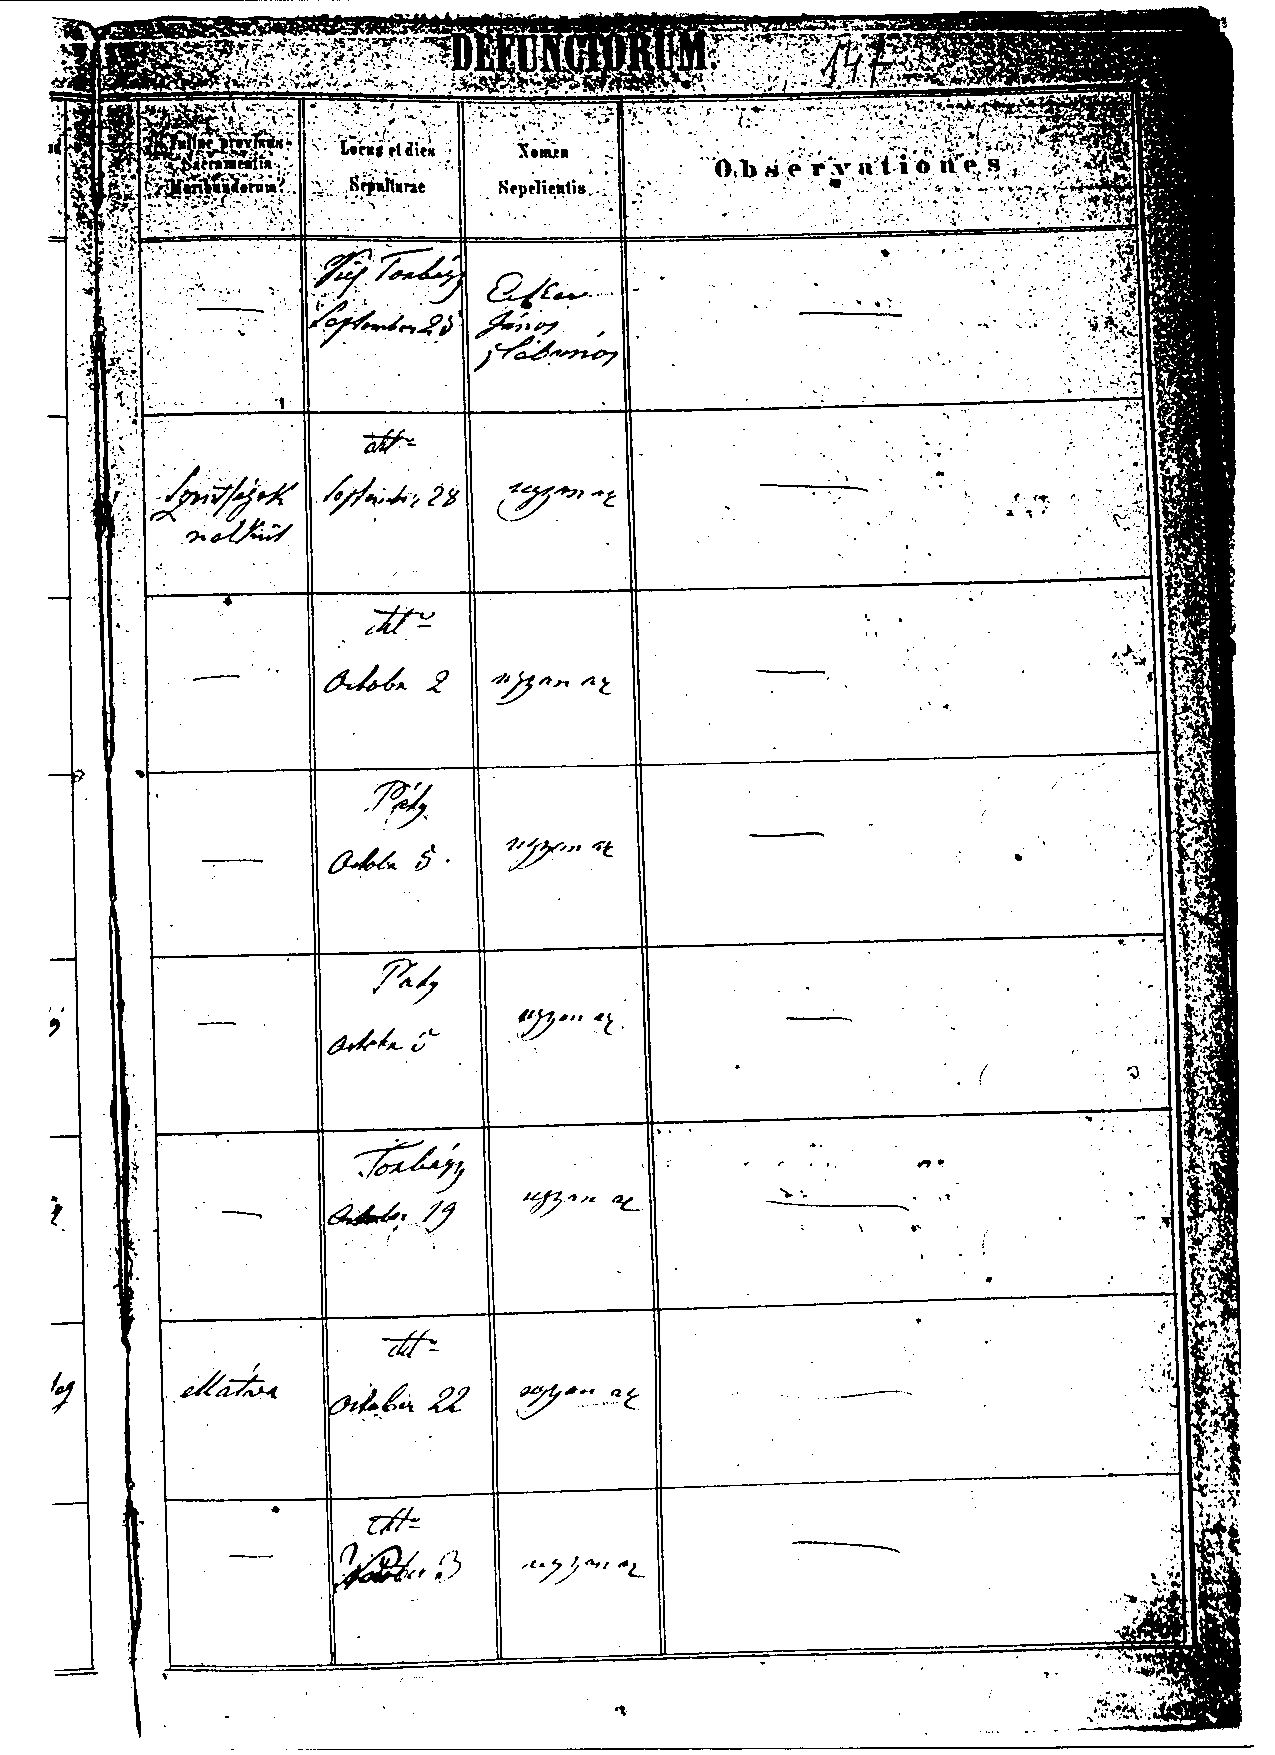 DEFUNCTORUM. 147
An fine provisus
Sacramentis
Moribundorum?
Locus et dies
Sepulturae
Nomen
Sepelientis
Observationes
Torbágy
September 25
János
plébános
dtt-
September 28
ugyan az
dtt-
October 2
ugyan az
Páty
October 5.
ugyan az
Páty
October 5
ugyan az
Torbágy
October 19
ugyan az
dtt-
October 22
ugyan az
dtt-
3
ugyan az